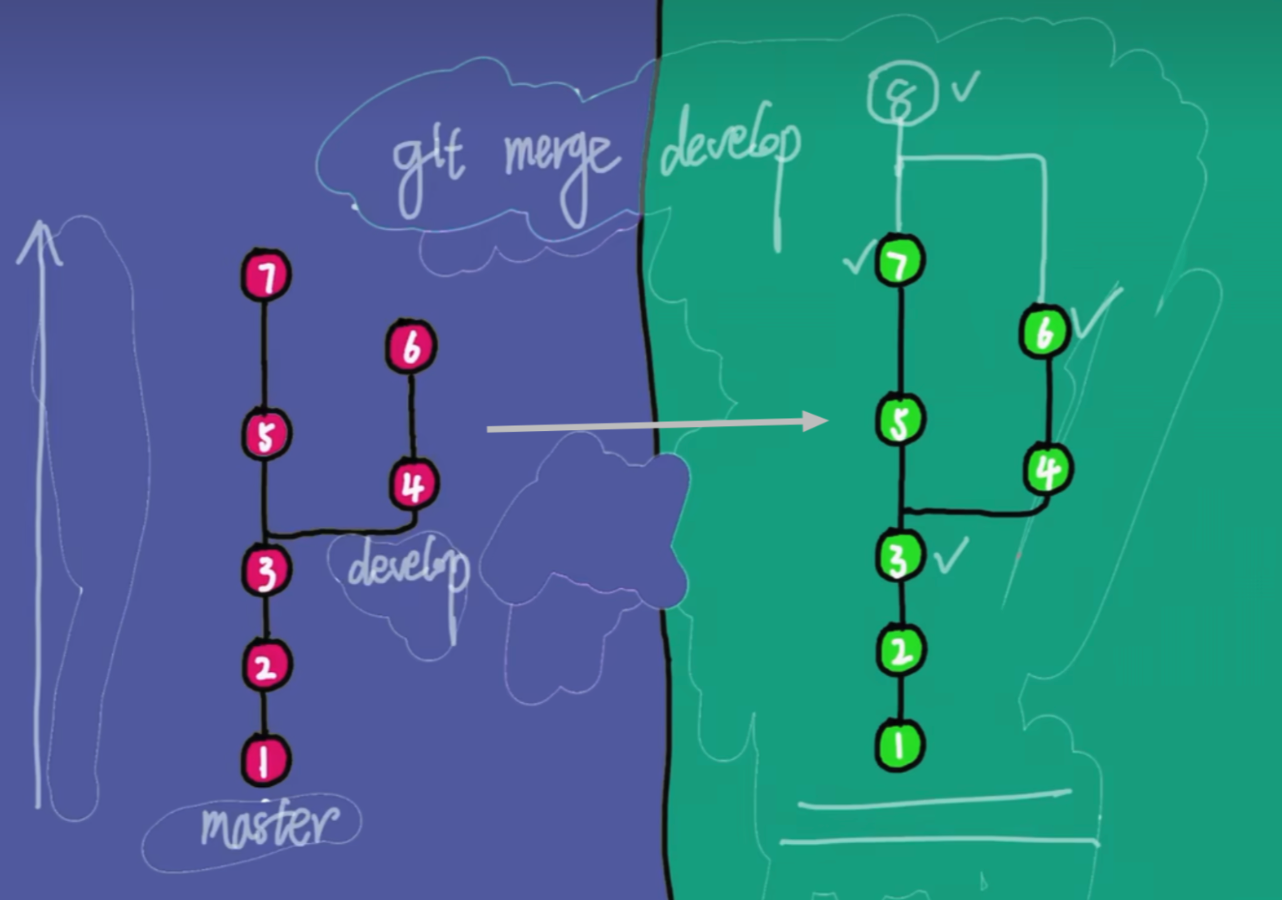 git merge develop
8
7
6
5
4
3
2
1
develop
master
7
6
5
4
3
2
1